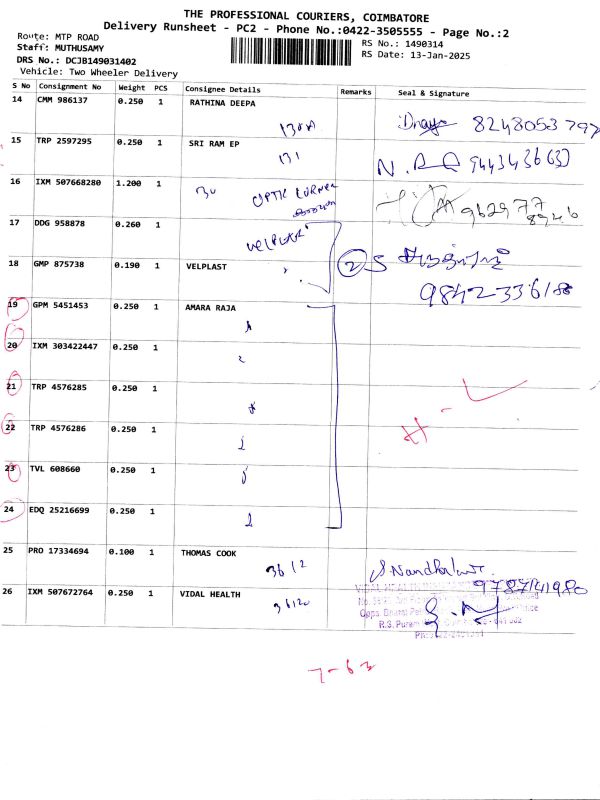 THE PROFESSIONAL COURIERS, COIMBATORE
Delivery Runsheet - PC2 - Phone No.:0422-3505555 - Page No.:2
Route: MTP ROAD
RS No.: 1490314
Staff: MUTHUSAMY
RS Date: 13-Jan-2025
DRS No.: DCJB149031402
Vehicle: Two Wheeler Delivery
S No Consignment No Weight PCS Consignee Details Remarks Seal & Signature
14 CMM 986137 0.250 1 RATHINA DEEPA
8248053797
15 TRP 2597295 0.250 1 SRI RAM EP
131
16 IXM 507668280 1.200 1
OPTIC CORNER
962977
8946
17 DDG 958878 0.260 1
VELPLAST
18 GMP 875738 0.190 1 VELPLAST
2
19 GPM 5451453 0.250 1 AMARA RAJA
20 IXM 303422447 0.250 1
21 TRP 4576285 0.250 1
22 TRP 4576286 0.250 1
23 TVL 608660 0.250 1
24 EDQ 25216699 0.250 1
25 PRO 17334694 0.100 1 THOMAS COOK
3612
9787141980
26 IXM 507672764 0.250 1 VIDAL HEALTH
3620
R.S. Puram
7-63